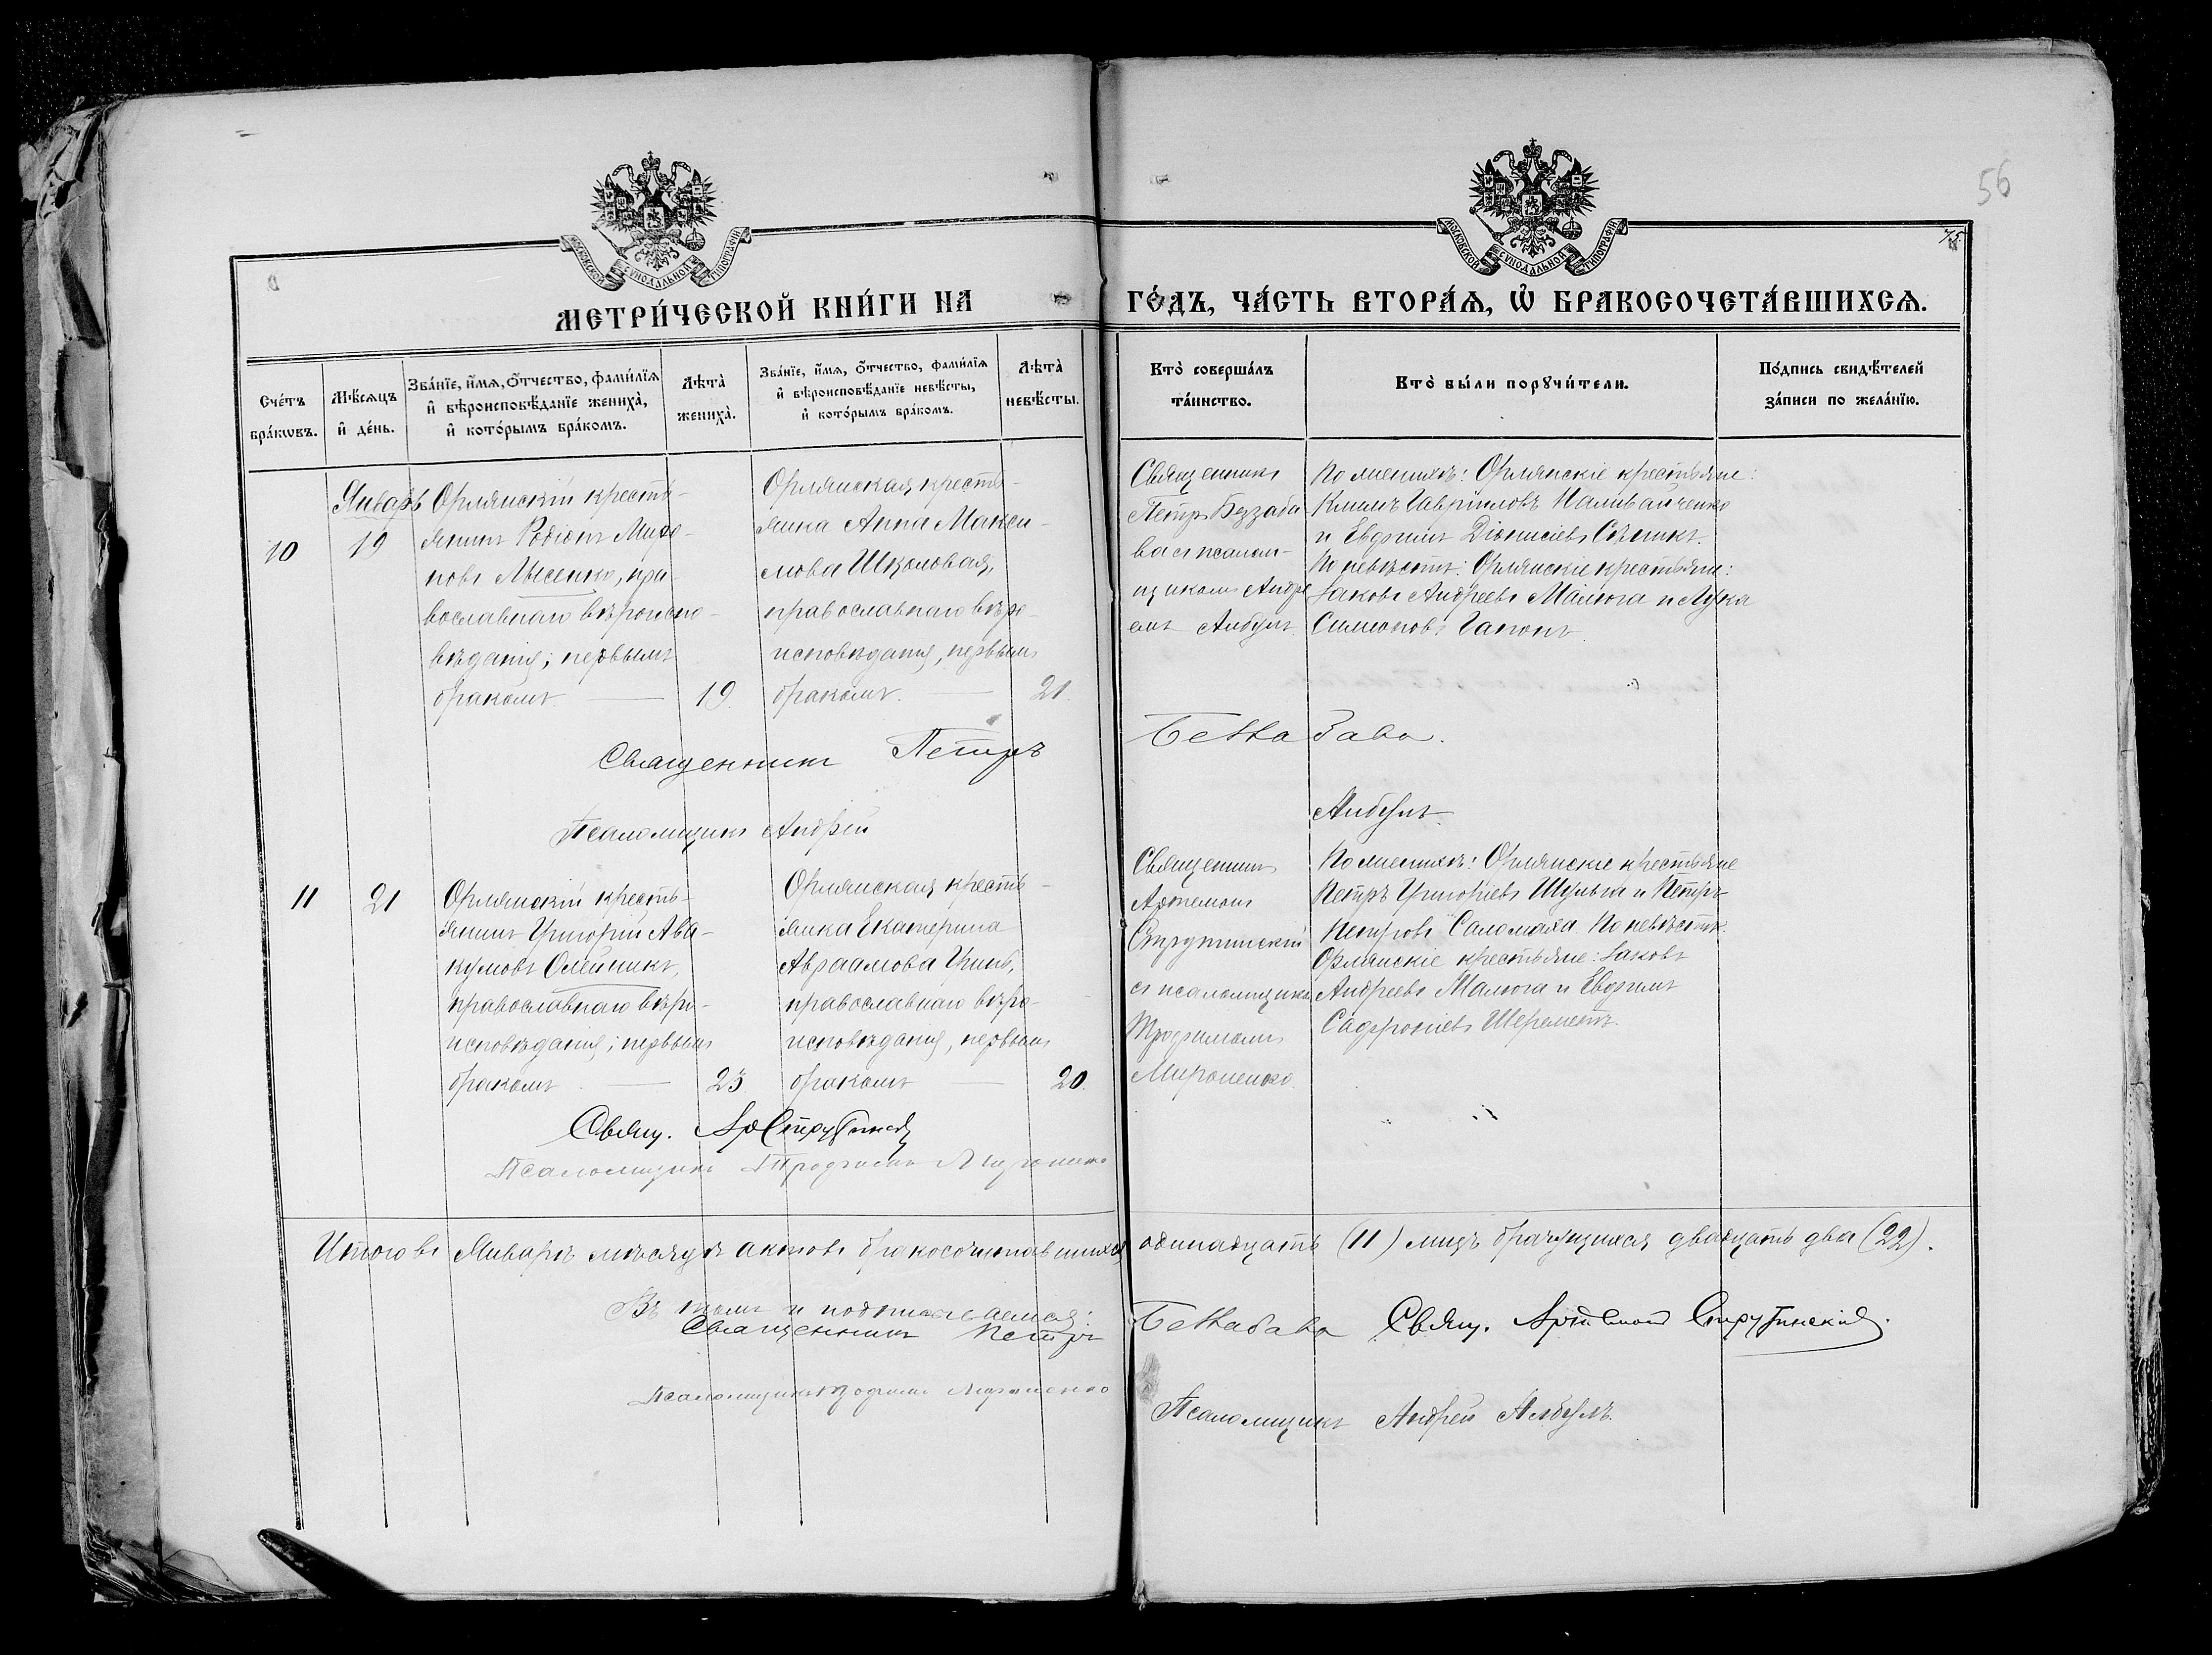 56
75
МОСКОВСКОЙ СѴНОДАЛЬНОЙ ТИПОГРАФІИ
МОСКОВСКОЙ СѴНОДАЛЬНОЙ ТИПОГРАФІИ
МЕТРИ́ЧЕСКОЙ КНИ́ГИ НА ГО́ДЪ, ЧА́СТЬ ВТОРА́Ѧ, Ѽ БРАКОСОЧЕТА́ВШИХСѦ.
Сче́тъ бра́кωвъ.
Мѣ́сѧцъ и҆ де́нь.
Зва́нїе, и҆́мѧ, ѻ҆́тчество, фами́лїѧ и҆ вѣроисповѣ́данїе жениха̀, и҆ кото́рымъ бра́комъ.
Лѣта̀ жениха̀.
Зва́нїе, и҆́мѧ, ѻ҆́тчество, фами́лїѧ и҆ вѣроисповѣ́данїе невѣ́сты, и҆ кото́рымъ бра́комъ.
Лѣта̀ невѣ́сты.
Кто̀ соверша́лъ та́инство.
Кто̀ бы́ли порꙋчи́тели.
По́дпись свидѣ́телей за́писи по жела́нїю.
10
Январь
19
Орлянскій кресть-
янинъ Родіонъ Миро-
новъ Лысенко, пра-
вославнаго вѣроиспо-
вѣданія; первымъ
бракомъ. — 19.
Орлянская, кресть-
янка Анна Макси-
мова Шкуловая,
православнаго вѣро-
исповѣданія, первымъ
бракомъ. — 21.
Священникъ
Петръ Беззаба
ва съ псалом-
щикомъ Андре
емъ Албулъ.
По женихѣ: Орлянскіе крестьяне:
Климъ Гавріиловъ Наливайченко
и Евфимъ Діонисіевъ Сѣникъ.
По невѣстѣ: Орлянскіе крестьяне:
Іаковъ Андреевъ Малюга и Лука
Симоновъ Гапонъ.
Священникъ Петръ Беззабава.
Псаломщикъ Андрей Албулъ.
11
21
Орлянскій кресть-
янинъ Григорій Ава-
кумовъ Олейникъ,
православнаго вѣро-
исповѣданія; первымъ
бракомъ — 23
Орлянская кресть-
янка Екатерина
Авраамова Гринь,
православнаго вѣро-
исповѣданія, первымъ
бракомъ — 20.
Священникъ
Артемонъ
Струтинскій
съ псаломщикомъ
Трофимомъ
Мироненко.
По женихѣ: Орлянскіе крестьяне
Петръ Григоріевъ Шульга и Петръ
Петровъ Саломаха По невѣстѣ:
Орлянскіе крестьяне: Іаковъ
Андреевъ Малюга и Евфимъ
Софроніевъ Шереметъ.
Свящ. Ар Струтинскій
Псаломщикъ Трофимъ Мироненко
Итого въ Январѣ мѣсяцѣ актовъ бракосочетавшихся одинадцать (11) лицъ брачущихся двадцать два (22).
Въ томъ и подписываемся:
Священникъ Петръ Беззабава Свящ. Артемонъ Струтинскій.
Псаломщикъ Трофимъ Мироненко
Псаломщикъ Андрей Албулъ.